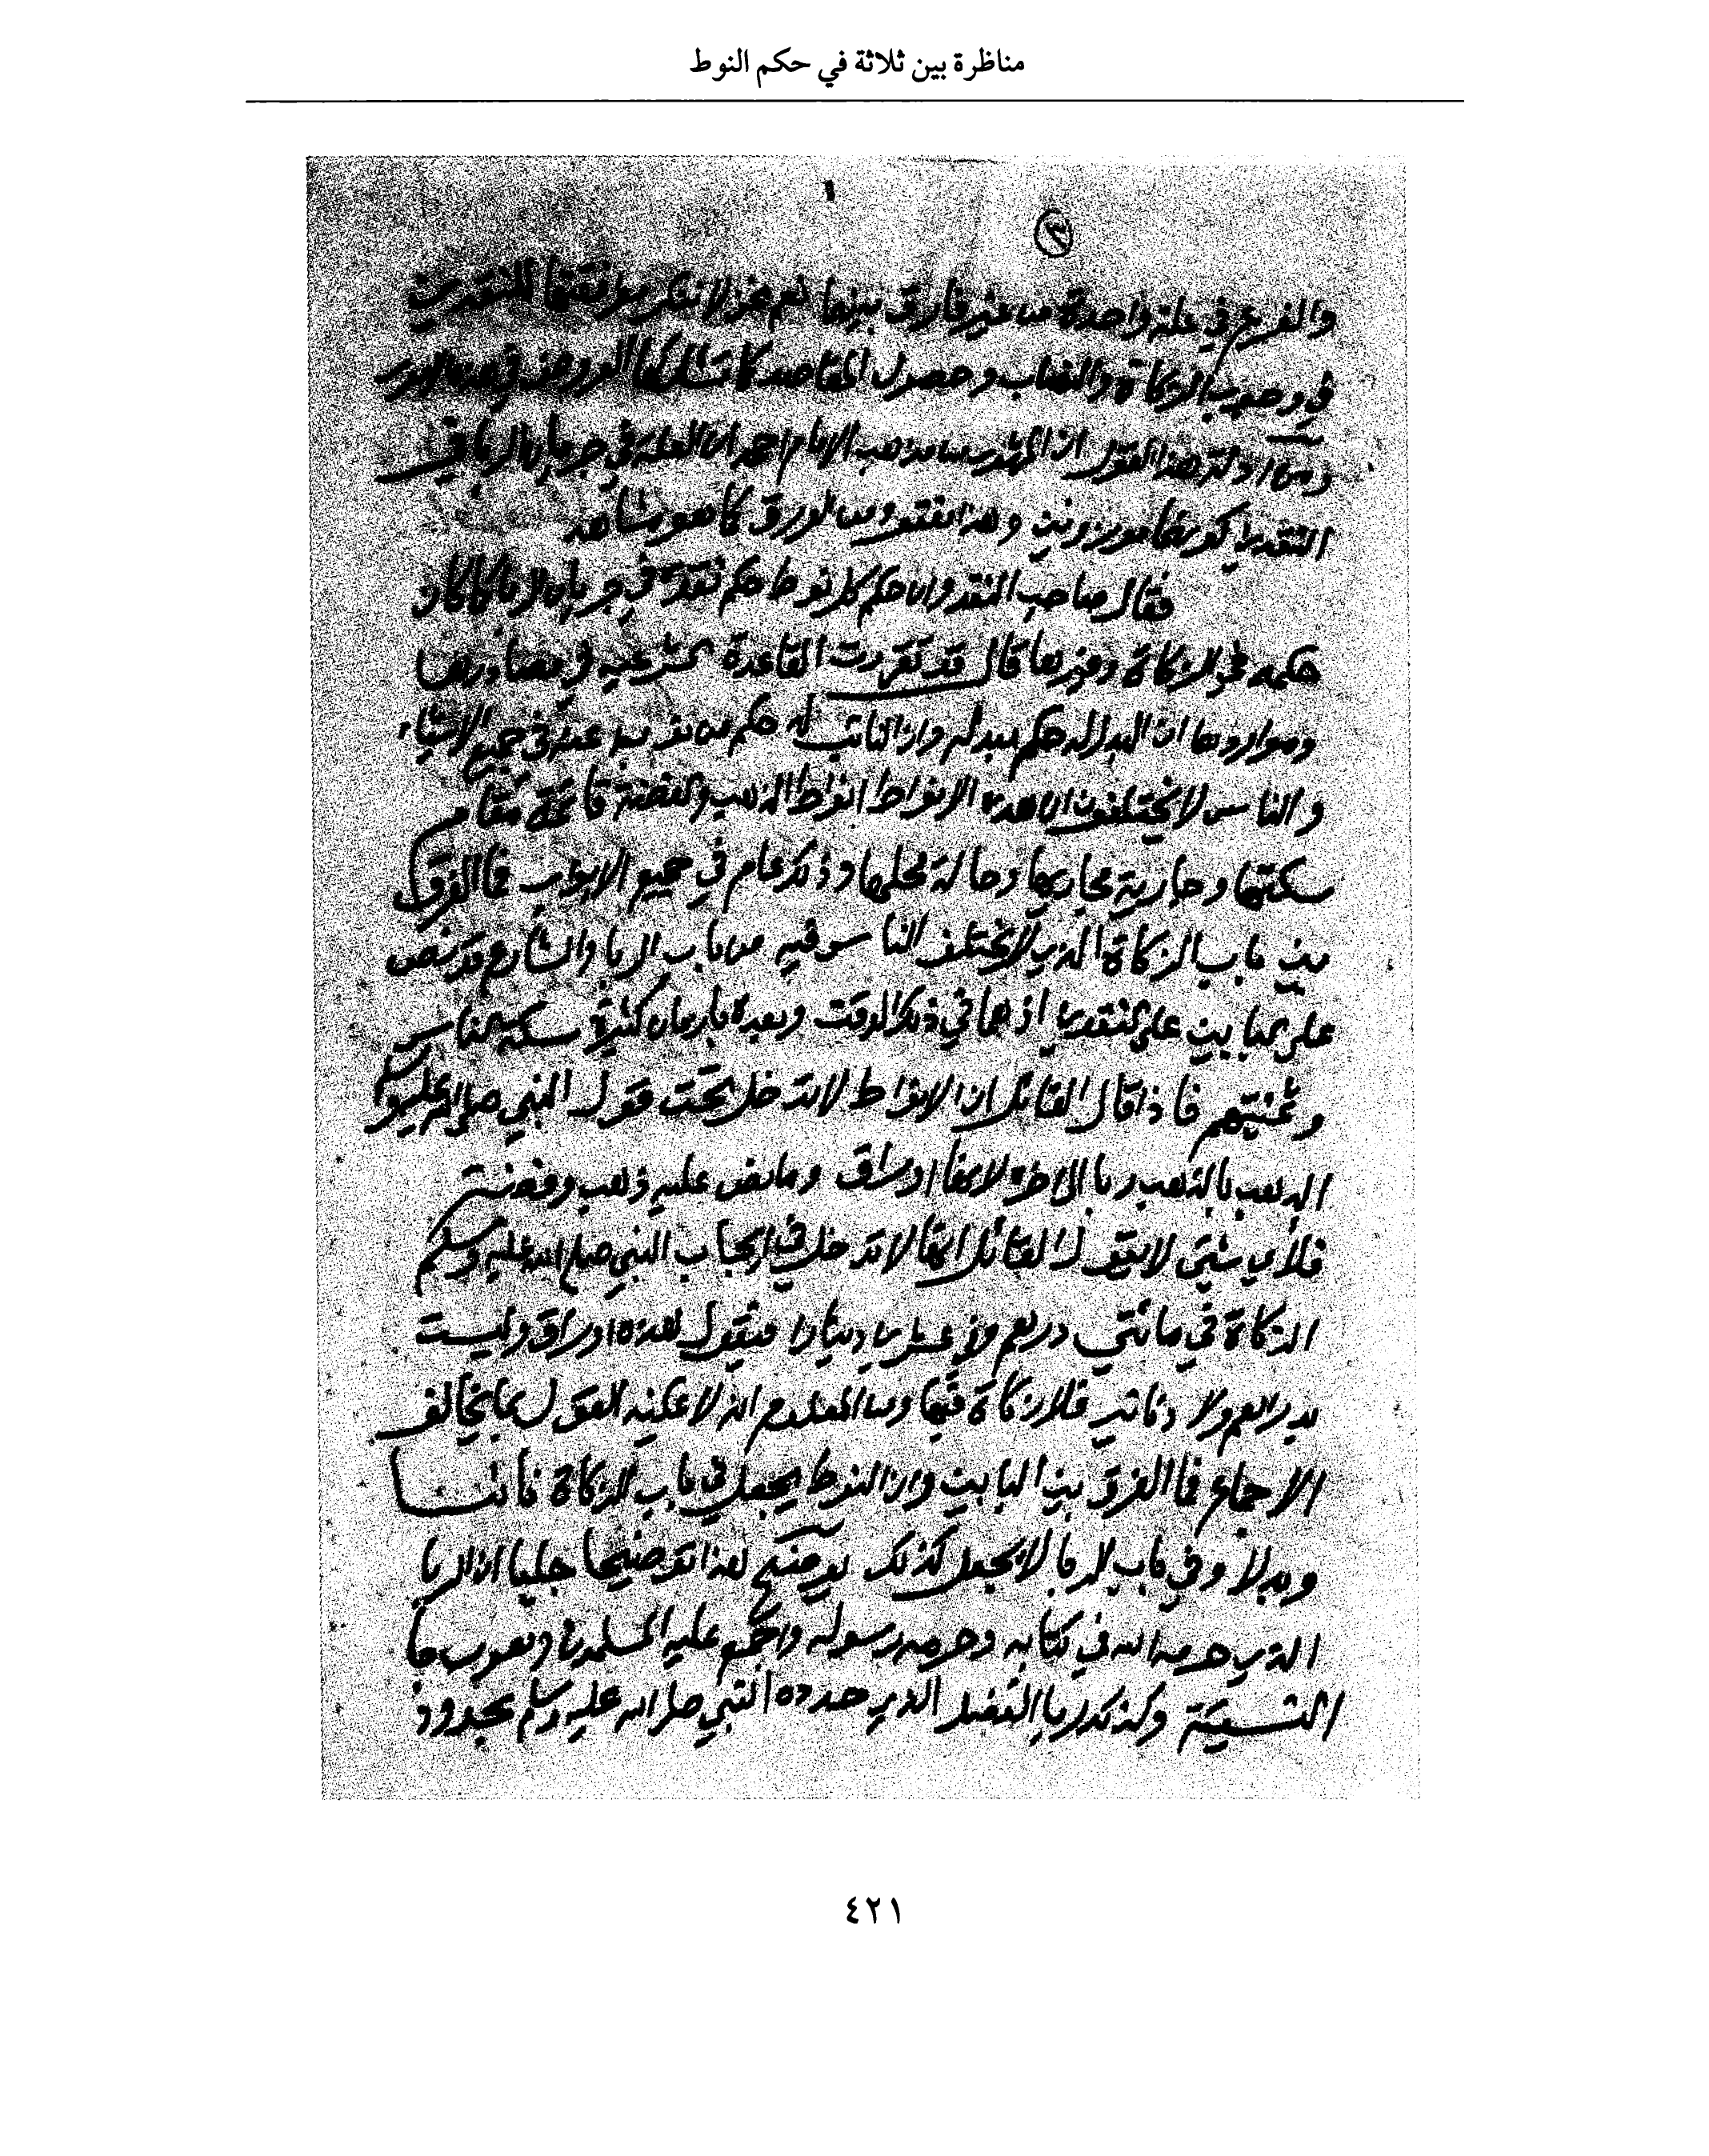 مناظرة بين ثلاثة في حكم النوط
١
٣
والفرع في علة واحدة من غير فارق بينهما نعم نحن لا ننكر موافقتها للنقدين
في وجوب الزكاة والنصاب وحصول المقاصد كما تشاركها العروض في هذه الامور
ومن ادلة هذا القول ان المشهور من مذهب الامام احمد ان العلة في جريان الربا في
النقدين كونهما موزونين وهذا مفقود من الورق كما هو مشاهد
فقال صاحب النقد وان حكم كل نوط حكم نقده في جريان الربا كما كان
حكمه في الزكاة وغيرها قال قد تقررت القاعدة الشرعية في مصادرها
ومواردها ان البدل له حكم مبدله وان النائب له حكم من ناب عنه في جميع الاشياء
والناس لا يختلفون ان هذه الانواط انواط الذهب والفضة قائمة مقام
سكتها وجارية مجاريها وحالة محلها وذلك عام في جميع الابواب فما الفرق
بين باب الزكاة الذي لا يختلف الناس فيه من باب الربا والشارع قد نص
على البابين على النقدين اذ هما في ذلك الوقت وبعده بازمان كثيرة سكة الناس
وثمنيتهم فاذا قال القائل ان الانواط لا تدخل تحت قول النبي صلى الله عليه وسلم
الذهب بالذهب ربا الى اخره لانها اوراق وما نص عليه ذهب وفضة
فلأي شيئ لا يقول القائل انها لا تدخل في ايجاب النبي صلى الله عليه وسلم
الزكاة في مائتي درهم وفي عشرين دينارا فيقول هذه اوراق وليست
بدراهم ولا دنانير فلا زكاة فيها ومن المعلوم انه لا يمكنه القول بما يخالف
الاجماع فما الفرق بين البابين وان النوط يجعل في باب الزكاة نائبا
وبدلا وفي باب الربا لا يجعل كذلك يوضح هذا توضيحا جليا ان الربا
الذي حرمه الله في كتابه وحرمه رسوله واجمع عليه المسلمون وهو ربا
النسيئة وكذلك ربا الفضل الذي حدده النبي صلى الله عليه وسلم بحدود
٤٢١